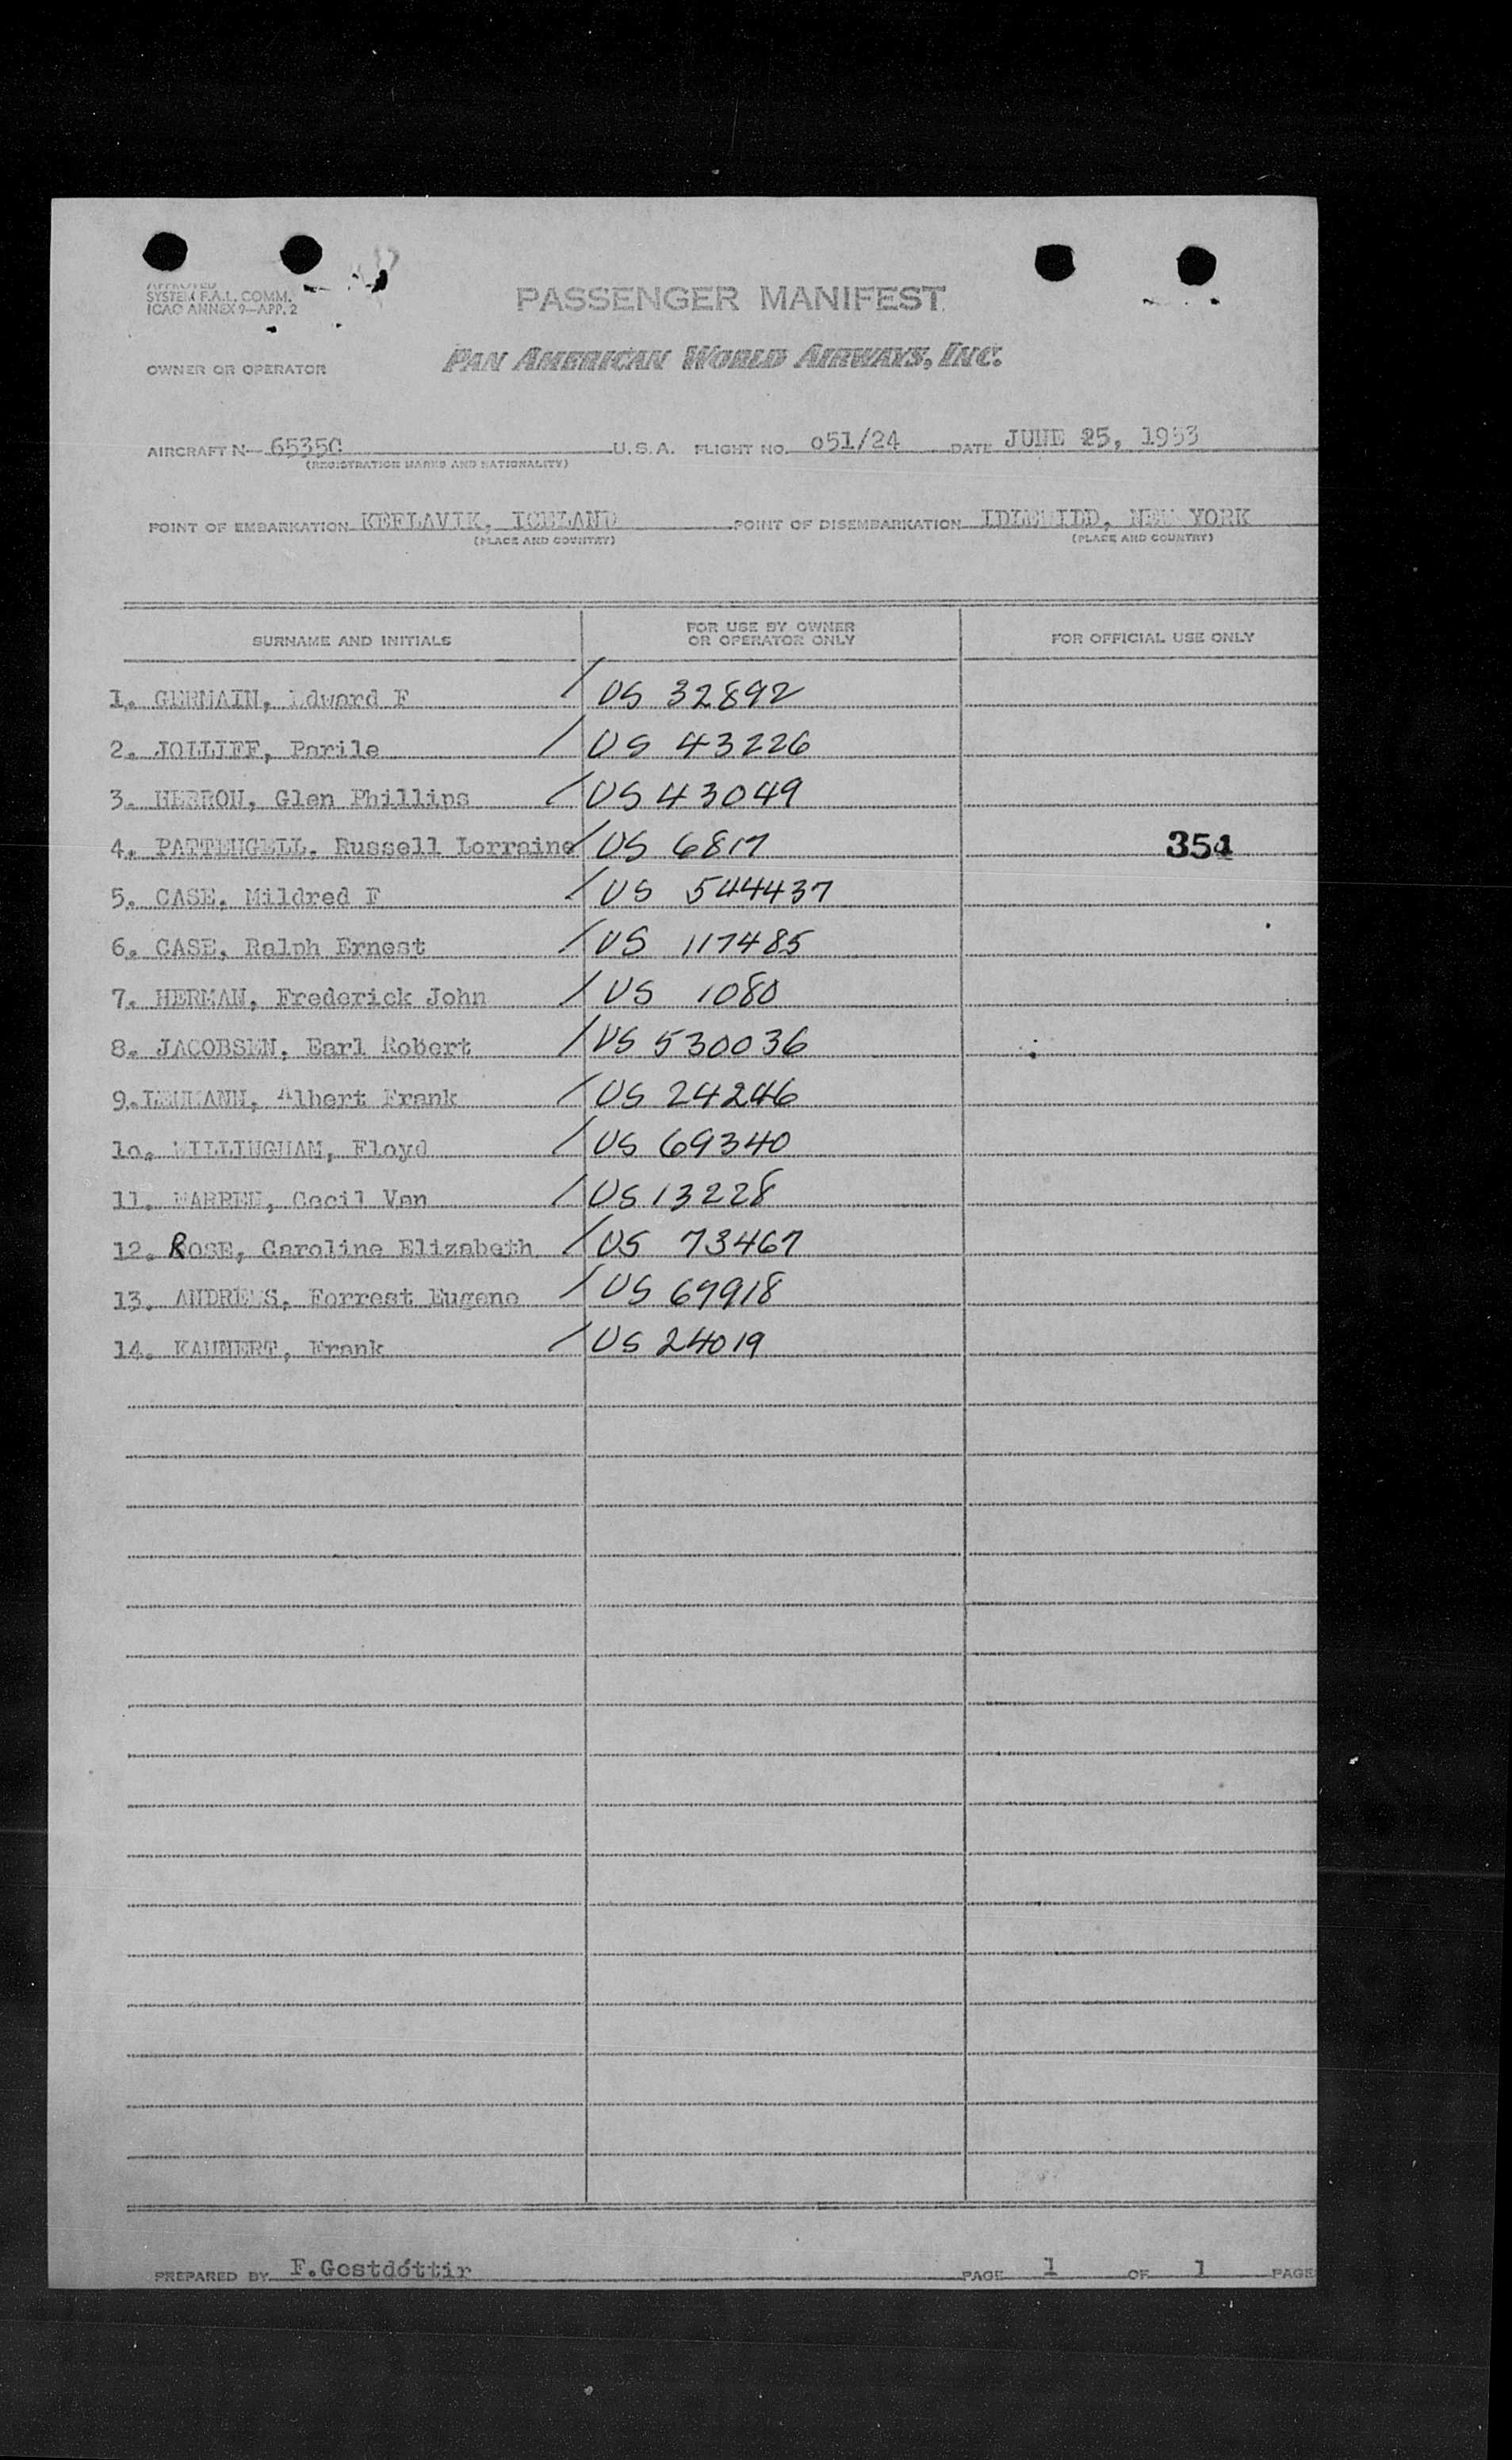 APPROVED
SYSTEM F.A.L. COMM.
ICAO ANNEX 9—APP. 2
PASSENGER MANIFEST
OWNER OR OPERATOR PAN AMERICAN WORLD AIRWAYS, INC.
AIRCRAFT N— 6535C U.S.A. FLIGHT NO. o51/24 DATE JUNE 25, 1953
(REGISTRATION MARKS AND NATIONALITY)
POINT OF EMBARKATION KEFLAVIK, ICELAND POINT OF DISEMBARKATION IDLEWILD, NEW YORK
(PLACE AND COUNTRY) (PLACE AND COUNTRY)
SURNAME AND INITIALS FOR USE BY OWNER OR OPERATOR ONLY FOR OFFICIAL USE ONLY
1. GERMAIN, Edward F / US 32892
2. JOLLIFF, Parile / US 43226
3. HERRON, Glen Phillips / US 43049
4. PATTENGELL, Russell Lorraine / US 6817 354
5. CASE, Mildred F / US 544437
6. CASE, Ralph Ernest / US 117485
7. HERMAN, Frederick John / US 1080
8. JACOBSEN, Earl Robert / US 530036
9. LEHMANN, Albert Frank / US 24246
1o. WILLINGHAM, Floyd / US 69340
11. WARREN, Cecil Van / US 13228
12. ROSE, Caroline Elizabeth / US 73467
13. ANDREWS, Forrest Eugene / US 67918
14. KAUNERT, Frank / US 24019
PREPARED BY F.Gestdóttir PAGE 1 OF 1 PAGE